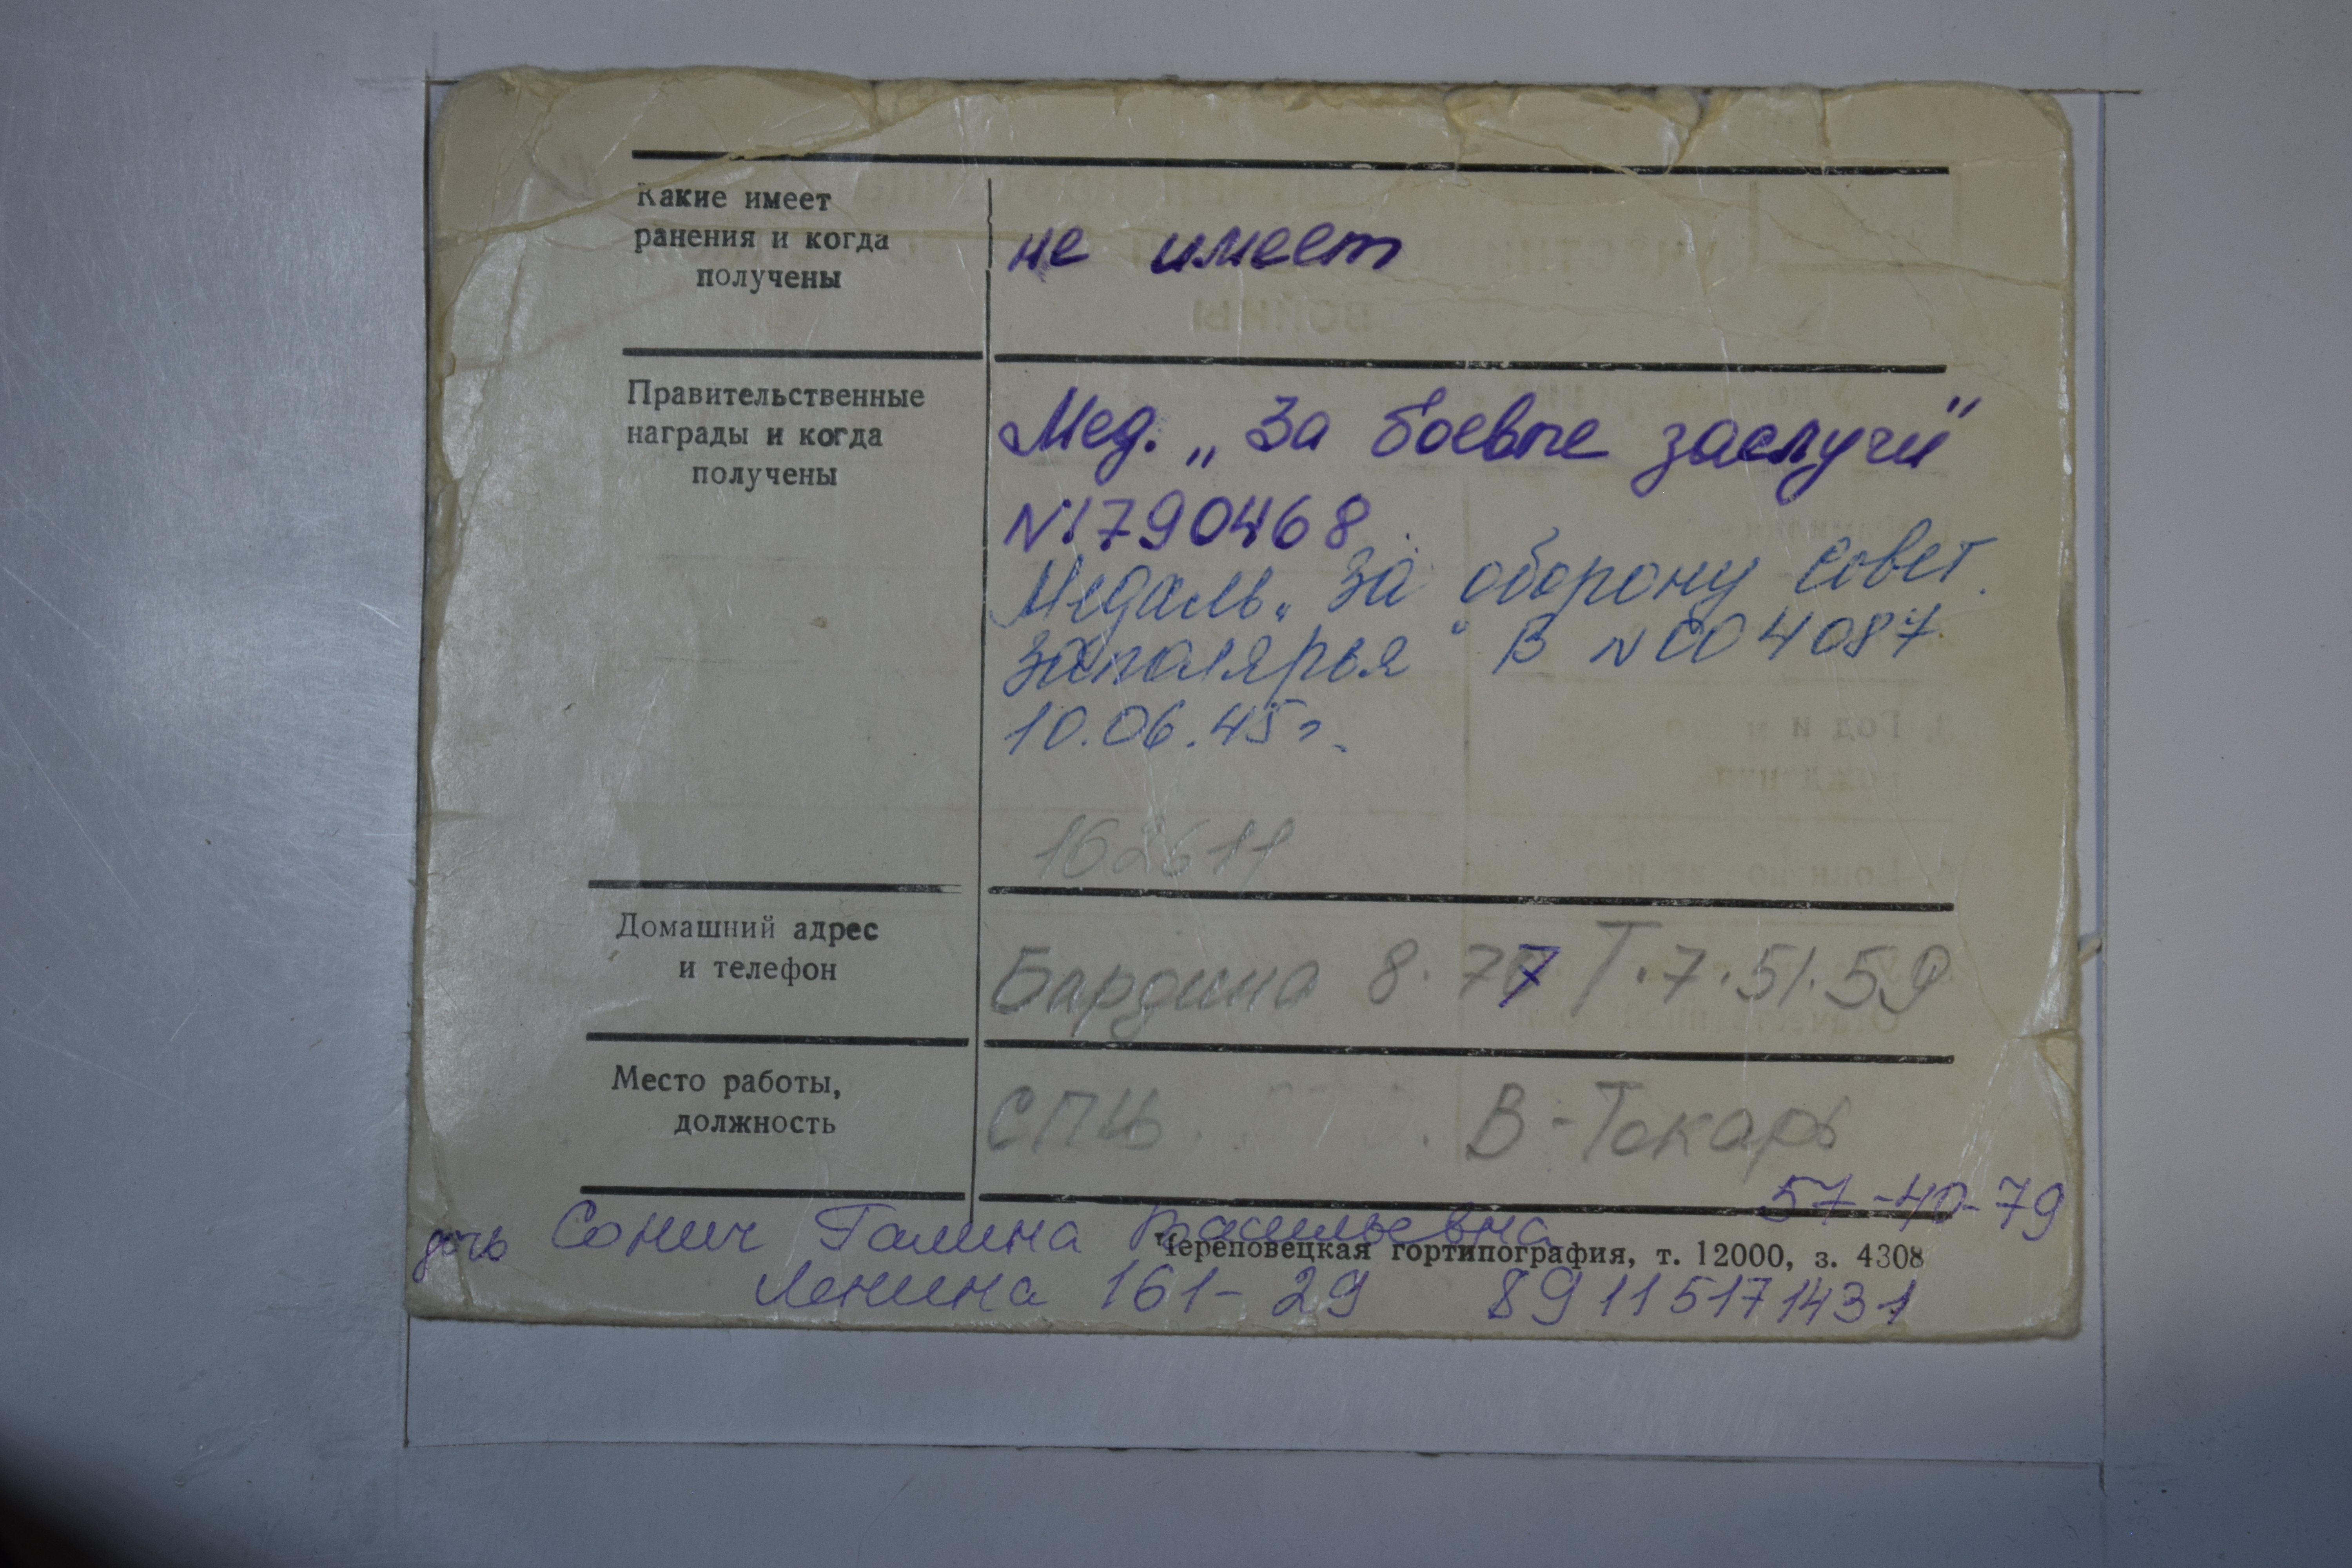 Какие имеет
ранения и когда
получены
не имеет
Правительственные
награды и когда
получены
Мед. „За боевые заслуги"
N1790468
Медаль „За оборону Совет.
Заполярья" В N004087
10.06.45г.
162611
Домашний адрес
и телефон
Бардина 8.77 Т.7.51.59
Место работы,
должность
СПЦ. В-Токарь
57-40-79
дочь Сонич Галина Васильевна
Череповецкая гортипография, т. 12000, з. 4308
Ленина 161-29 89115171431